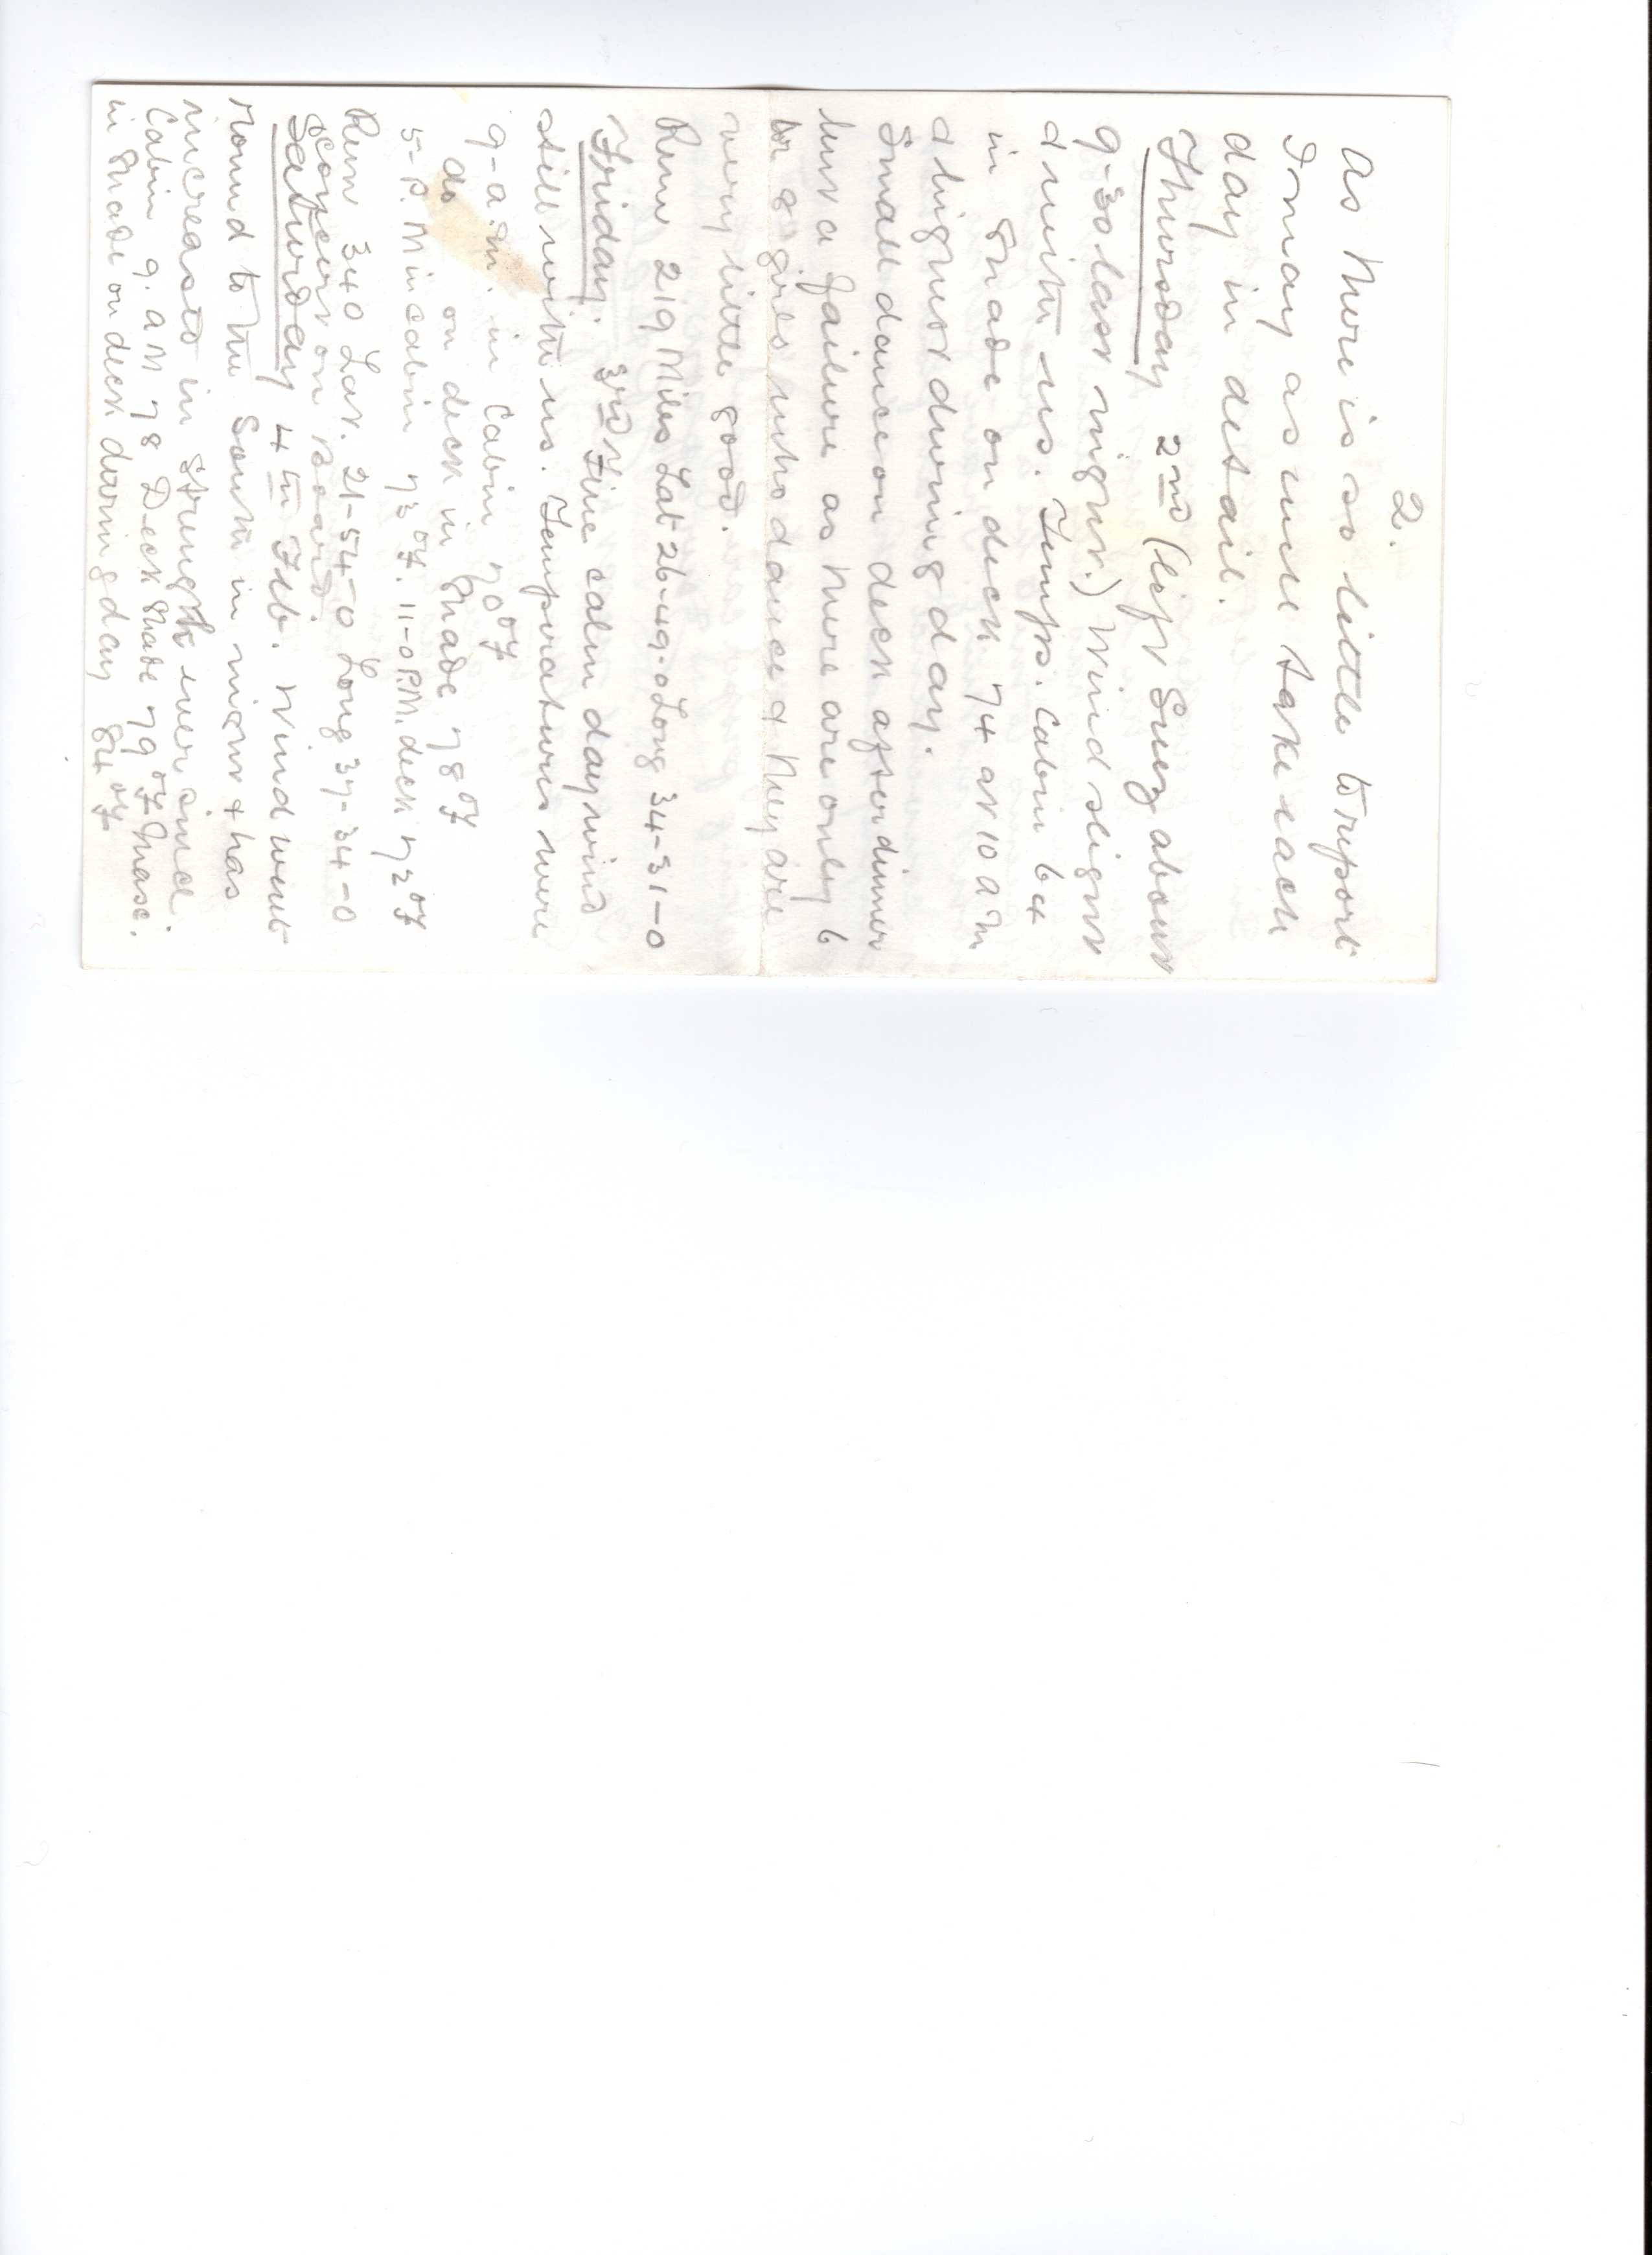 2.
As there is so little to report
I may as well take each
day in detail.
Thursday 2nd (left Suez about
9-30 last night.) Wind slight
& with us. Temps. Cabin 64
in shade on deck 74 at 10 am
& highest during day.
Small dance on deck after dinner
but a failure as there are only 6
or 8 girls who dance & they are
very little good.
Run 219 Miles Lat 26-49-0 Long 34-31-0
Friday. 3rd Fine calm day wind
still with us. Temperatures were
9-a.m. in Cabin 70°F
do on deck in shade 78°F
5-P.M in cabin 73°F. 11-0 P.M. deck 72°F
Run 340 Lat. 21-54-0 Long 37-34-0
Concert on Board.
Saturday 4th Feb. Wind went
round to the South in night & has
increased in strength ever since.
Cabin 9. a M 78 Deck shade 79°F
in shade on deck during day 84°F